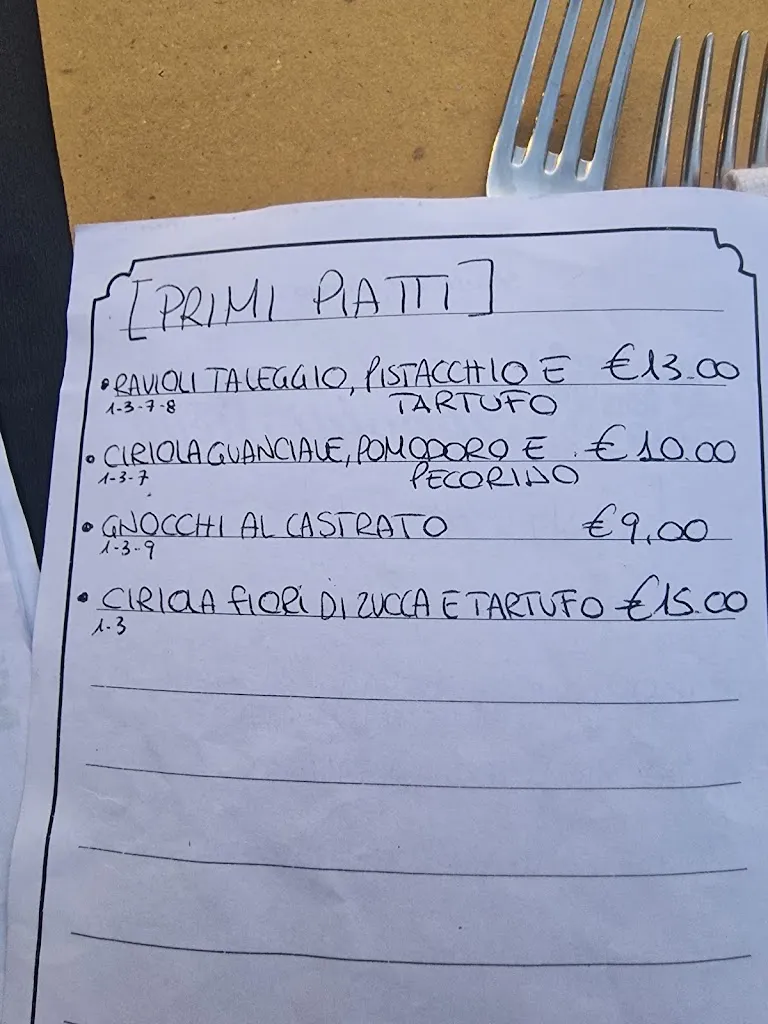 [PRIMI PIATTI]
• RAVIOLI TALEGGIO, PISTACCHIO E €13.00
1-3-7-8 TARTUFO
• CIRIOLA GUANCIALE, POMODORO E €10.00
1-3-7 PECORINO
• GNOCCHI AL CASTRATO €9,00
1-3-9
• CIRIOLA FIORI DI ZUCCA E TARTUFO €15.00
1-3